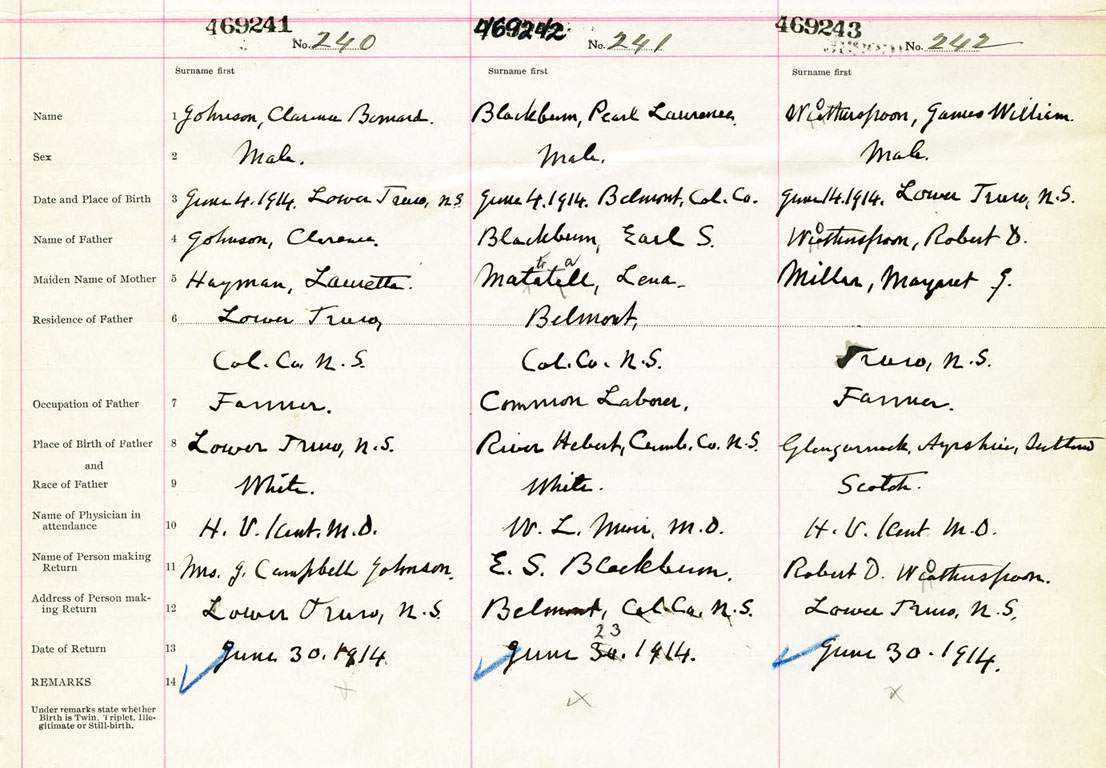 469241 469242 469243
No. 240 No. 241 No. 242
Surname first Surname first Surname first
Name 1 Johnson, Clarence Bernard. Blackburn, Pearl Laurence. Wotherspoon, James William.
Sex 2 Male. Male. Male.
Date and Place of Birth 3 June 4. 1914. Lower Truro, N.S. June 4. 1914. Belmont, Col. Co. June 14. 1914. Lower Truro, N.S.
Name of Father 4 Johnson, Clarence. Blackburn, Earl S. Wotherspoon, Robert D.
tr a
Maiden Name of Mother 5 Hayman, Lauretta. Matatall, Lena. Millar, Margaret J.
Residence of Father 6 Lower Truro, Belmont,
Col. Co. N.S. Col. Co. N.S. Truro, N.S.
Occupation of Father 7 Farmer. Common Laborer. Farmer.
Place of Birth of Father 8 Lower Truro, N.S. River Hebert, Cumb. Co. N.S. Glengarnock, Ayrshire, Scotland
and
Race of Father 9 White. White. Scotch.
Name of Physician in
attendance 10 H. V. Kent. M.D. W. L. Muir, M.D. H. V. Kent M.D.
Name of Person making
Return 11 Mrs. J. Campbell Johnson. E. S. Blackburn. Robert D. Wotherspoon.
Address of Person mak-
ing Return 12 Lower Truro, N.S. Belmont, Col. Co. N.S. Lower Truro, N.S.
23
Date of Return 13 June 30. 1914. June 30. 1914. June 30. 1914.
REMARKS 14
Under remarks state whether
Birth is Twin, Triplet, Ille-
gitimate or Still-birth.